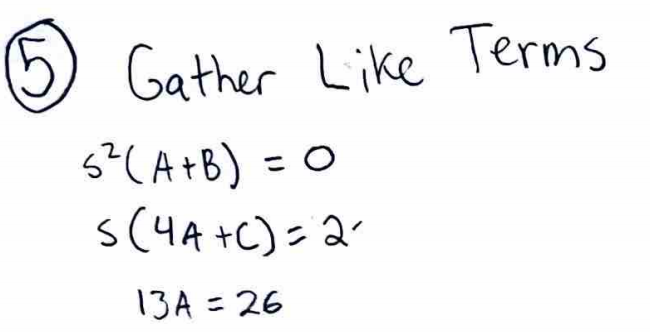 ⑤ Gather Like Terms
s²(A+B) = 0
s(4A+C) = 2
13A = 26